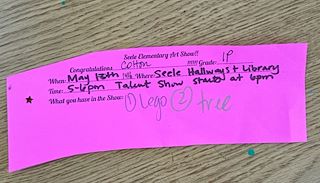 Seele Elementary Art Show!!
Congratulations Colton !!!!! Grade: 1P
When: May 13th Where Seele Hallways + Library
Time: 5-6pm Talent Show starts at 6pm
What you have in the Show: ① Lego ② tree